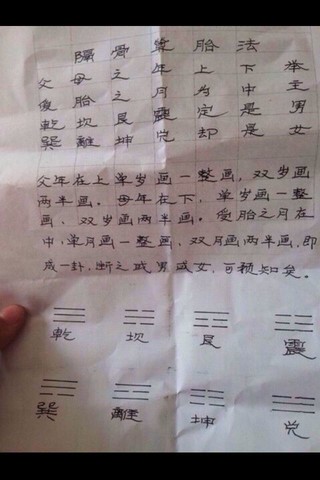 隔骨算胎法
父母之年上下举
受胎之月为中主
乾坎艮震定是男
巽離坤兑却是女
父年在上单岁画一整画,双岁画
两半画。母年在下,单岁画一整
画、双岁画两半画。受胎之月在
中,单月画一整画,双月画两半画,即
成一卦,断之或男或女,可预知矣。
乾 坎 艮 震
巽 離 坤 兑